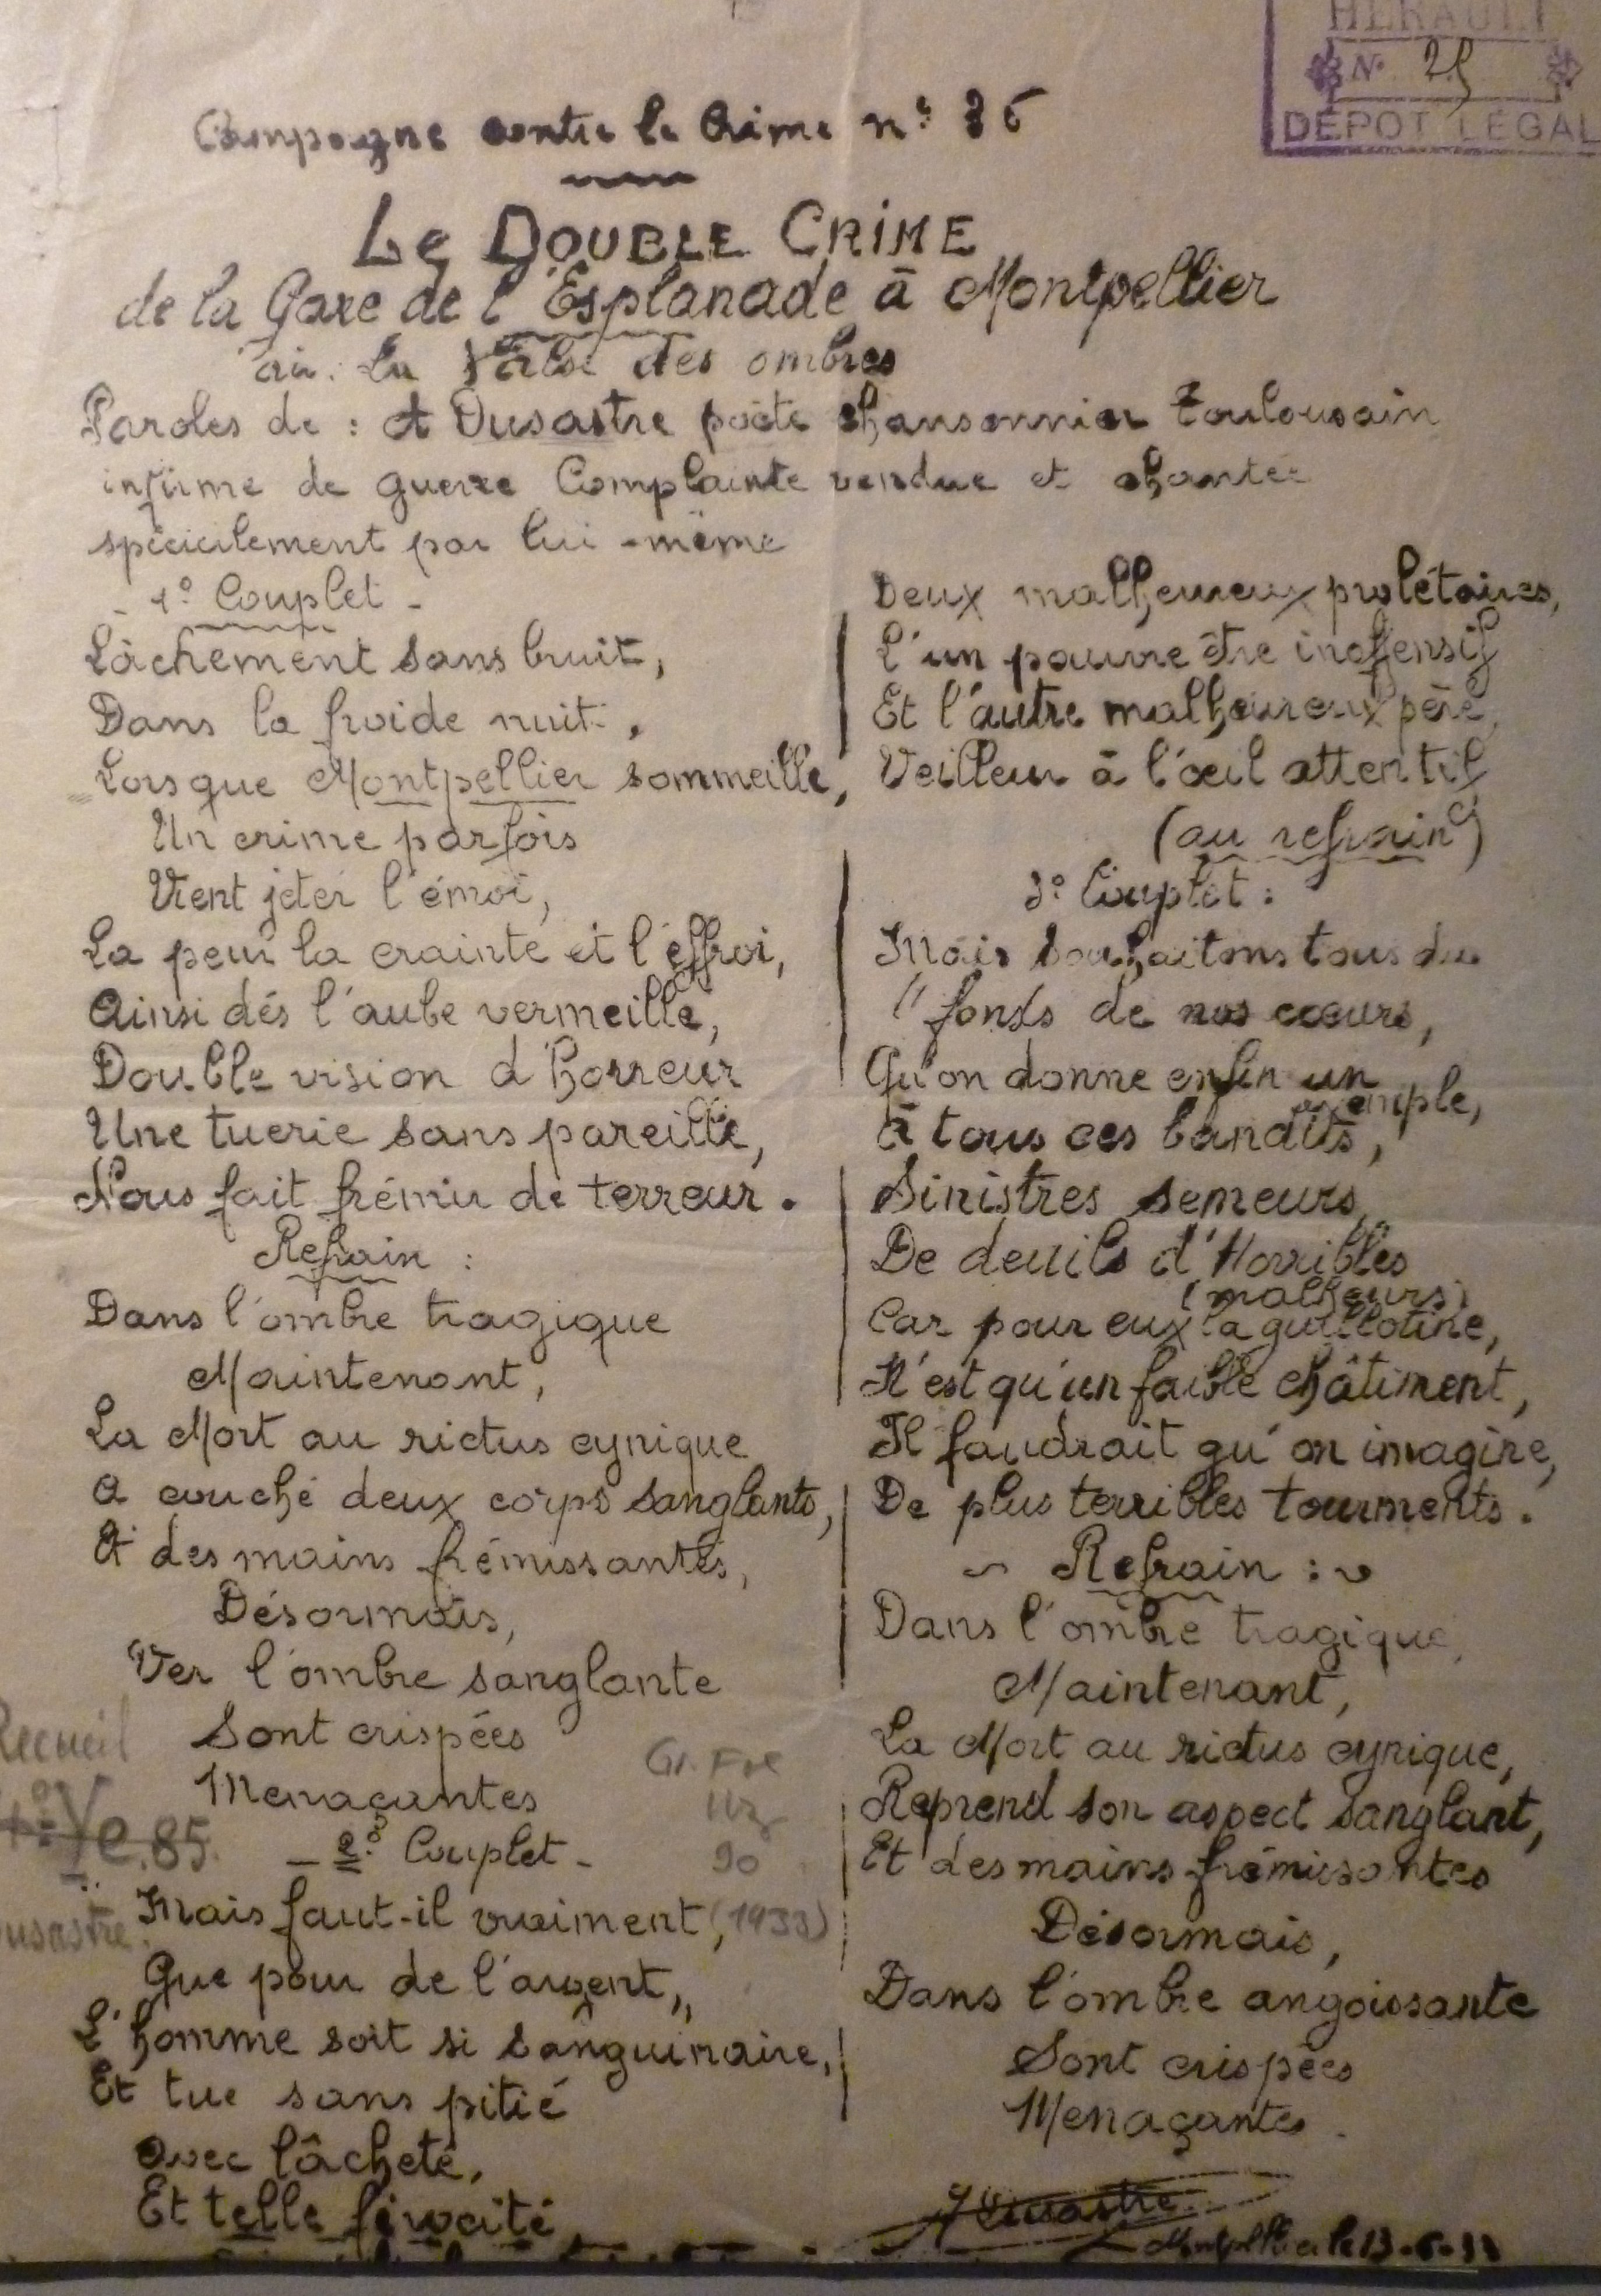 HÉRAULT
N° 25
DÉPOT LÉGAL
Campagne contre le Crime n° 36
Le DOUBLE CRIME
de la Gare de l'Esplanade à Montpellier
air: La Valse des ombres
Paroles de : A Dusastre poète chansonnier Toulousain
infirme de guerre Complainte vendue et chantée
spécicilement par lui-même
- 1° Couplet -
Lâchement sans bruit,
Dans la froide nuit,
Lorsque Montpellier sommeille,
Un crime parfois
Vient jeter l'émoi,
La peur la crainte et l'effroi,
Ainsi dés l'aube vermeille,
Double vision d'horreur
Une tuerie sans pareille,
Nous fait frémir de terreur.
Refrain :
Dans l'ombre tragique
Maintenant,
La Mort au rictus cynique
A couché deux corps sanglants,
Et des mains frémissantes,
Désormais,
Ver l'ombre sanglante
Sont crispées
Menaçantes
- 2° Couplet -
Mais faut-il vraiment, (1933)
Que pour de l'argent,
L'homme soit si sanguinaire,
Et tue sans pitié
avec lâcheté,
Et telle férocité
Recueil
4° Ye. 85.
Dusastre.
Gr. Fol
90
Deux malheureux prolétaires,
L'un pauvre être inoffensif
Et l'autre malheureux père,
Veilleur à l'œil attentif
(au refrain)
3° Couplet :
Mais souhaitons tous du
" fonds de nos cœurs,
Qu'on donne enfin un
exemple,
à tous ces bandits,
Sinistres semeurs
De deuils d'Horribles
(malheurs)
Car pour eux la guillotine,
N'est qu'un faible châtiment,
Il faudrait qu'on imagine,
De plus terribles tourments.
Refrain :
Dans l'ombre tragique,
Maintenant,
La Mort au rictus cynique,
Reprend son aspect sanglant,
Et des mains frémissantes
Désormais,
Dans l'ombre angoissante
Sont crispées
Menaçantes.
A Dusastre
Montpellier le 13-6-33